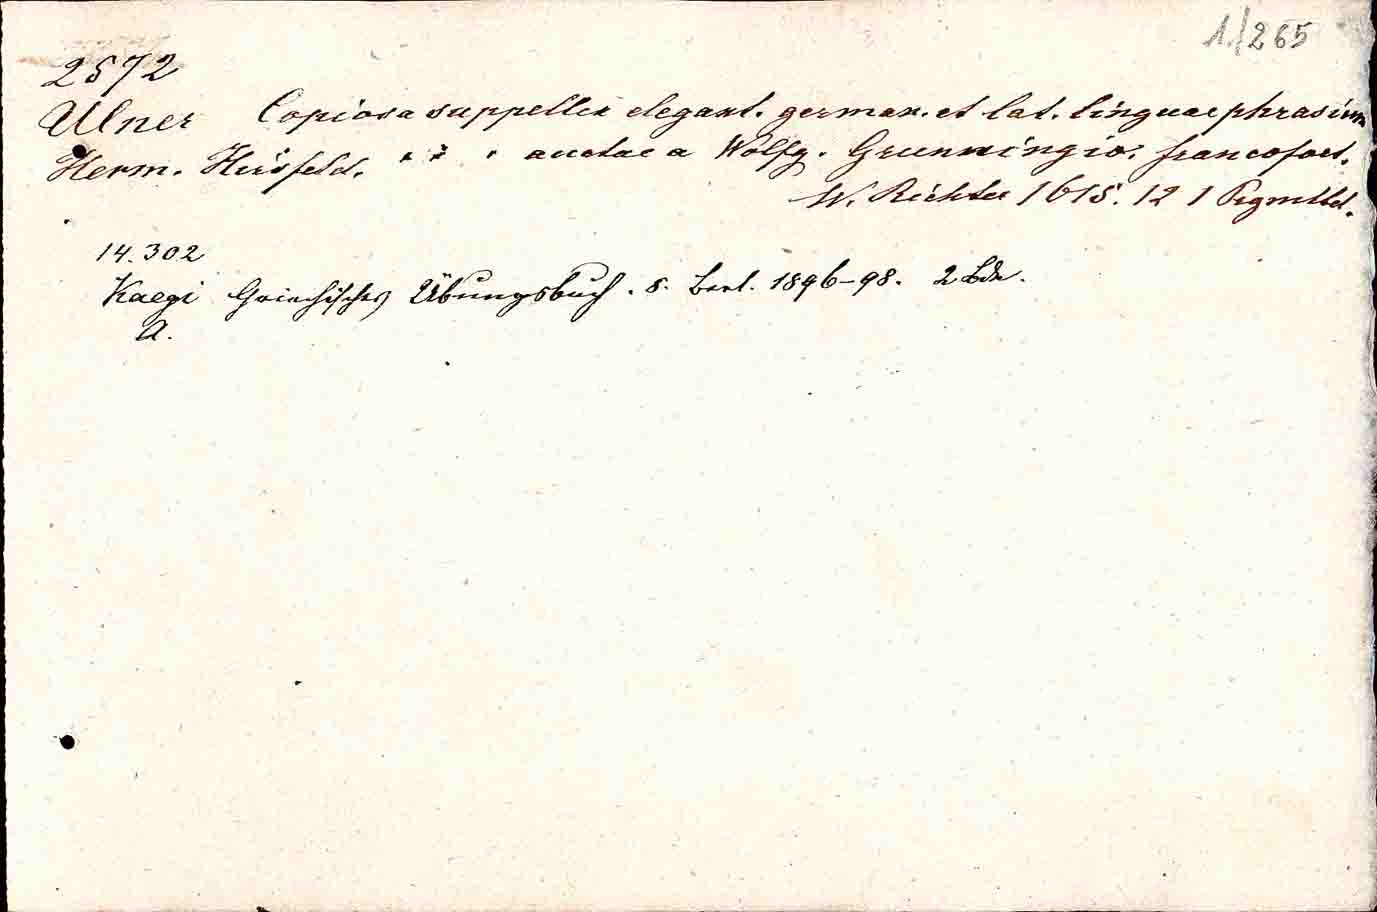 1./265
2572
Ulner Copiosa suppellex elegant. german. et lat. linguae phrasium
Herm. Hirsfeld. auctae a Wolfg. Grunningio. francofort.
W. Richter 1615. 12 1 Prgmtbd.
14.302
Kaegi Griechisches Übungsbuch. 8. Berl. 1896-98. 2 Bde.
A.